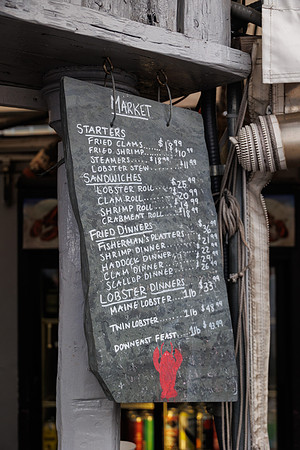 MARKET
STARTERS
FRIED CLAMS....$18.99
FRIED SHRIMP....$10.99
STEAMERS.....$18.99
LOBSTER STEW.....$11.99
SANDWICHES
LOBSTER ROLL....$25.99
CLAM ROLL.....$20.99
SHRIMP ROLL....
CRABMEAT ROLL...$18.99
FRIED DINNERS
FISHERMAN'S PLATTERS..$36.99
SHRIMP DINNER....$21.99
HADDOCK DINNER....
CLAM DINNER....$29.99
SCALLOP DINNER....$26.99
LOBSTER DINNERS
MAINE LOBSTER....1lb $33.99
TWIN LOBSTER.....1lb $48.99
DOWNEAST FEAST....1lb $43.99